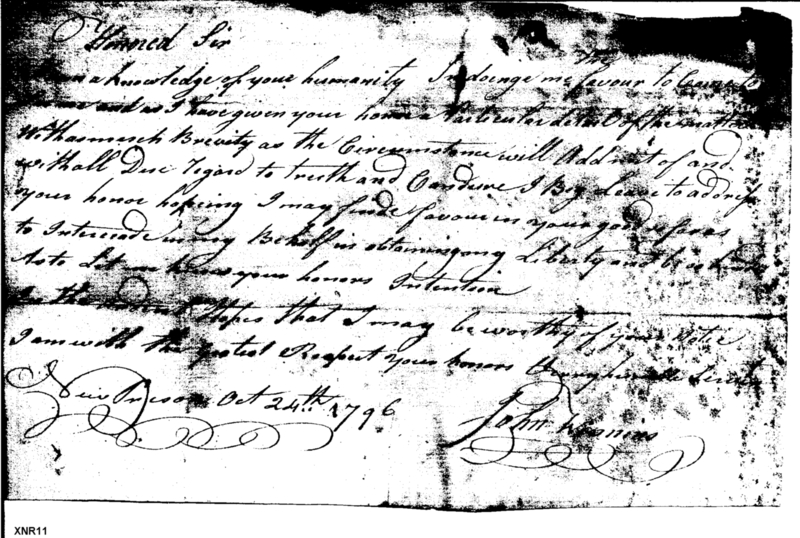 Honored Sir
from a knowledge of your humanity Indoenge me the favour to
and as I have given your honor a Particular detail of the matter
With as much Brevity as the Circumstance will Addmit of and
with all Due regard to truth and Candure I Beg Leave to address
your honor hoping I may finde favour in your good
to Intercede in my Behalf in obtaining my Liberty and be so kind
As to Let me know your honors Intention
In the Hopes that I may be worthy of your Notice
I am with the gratest Respect your honors Verry humble
New Prison Oct 24th 1796
John
XNR11